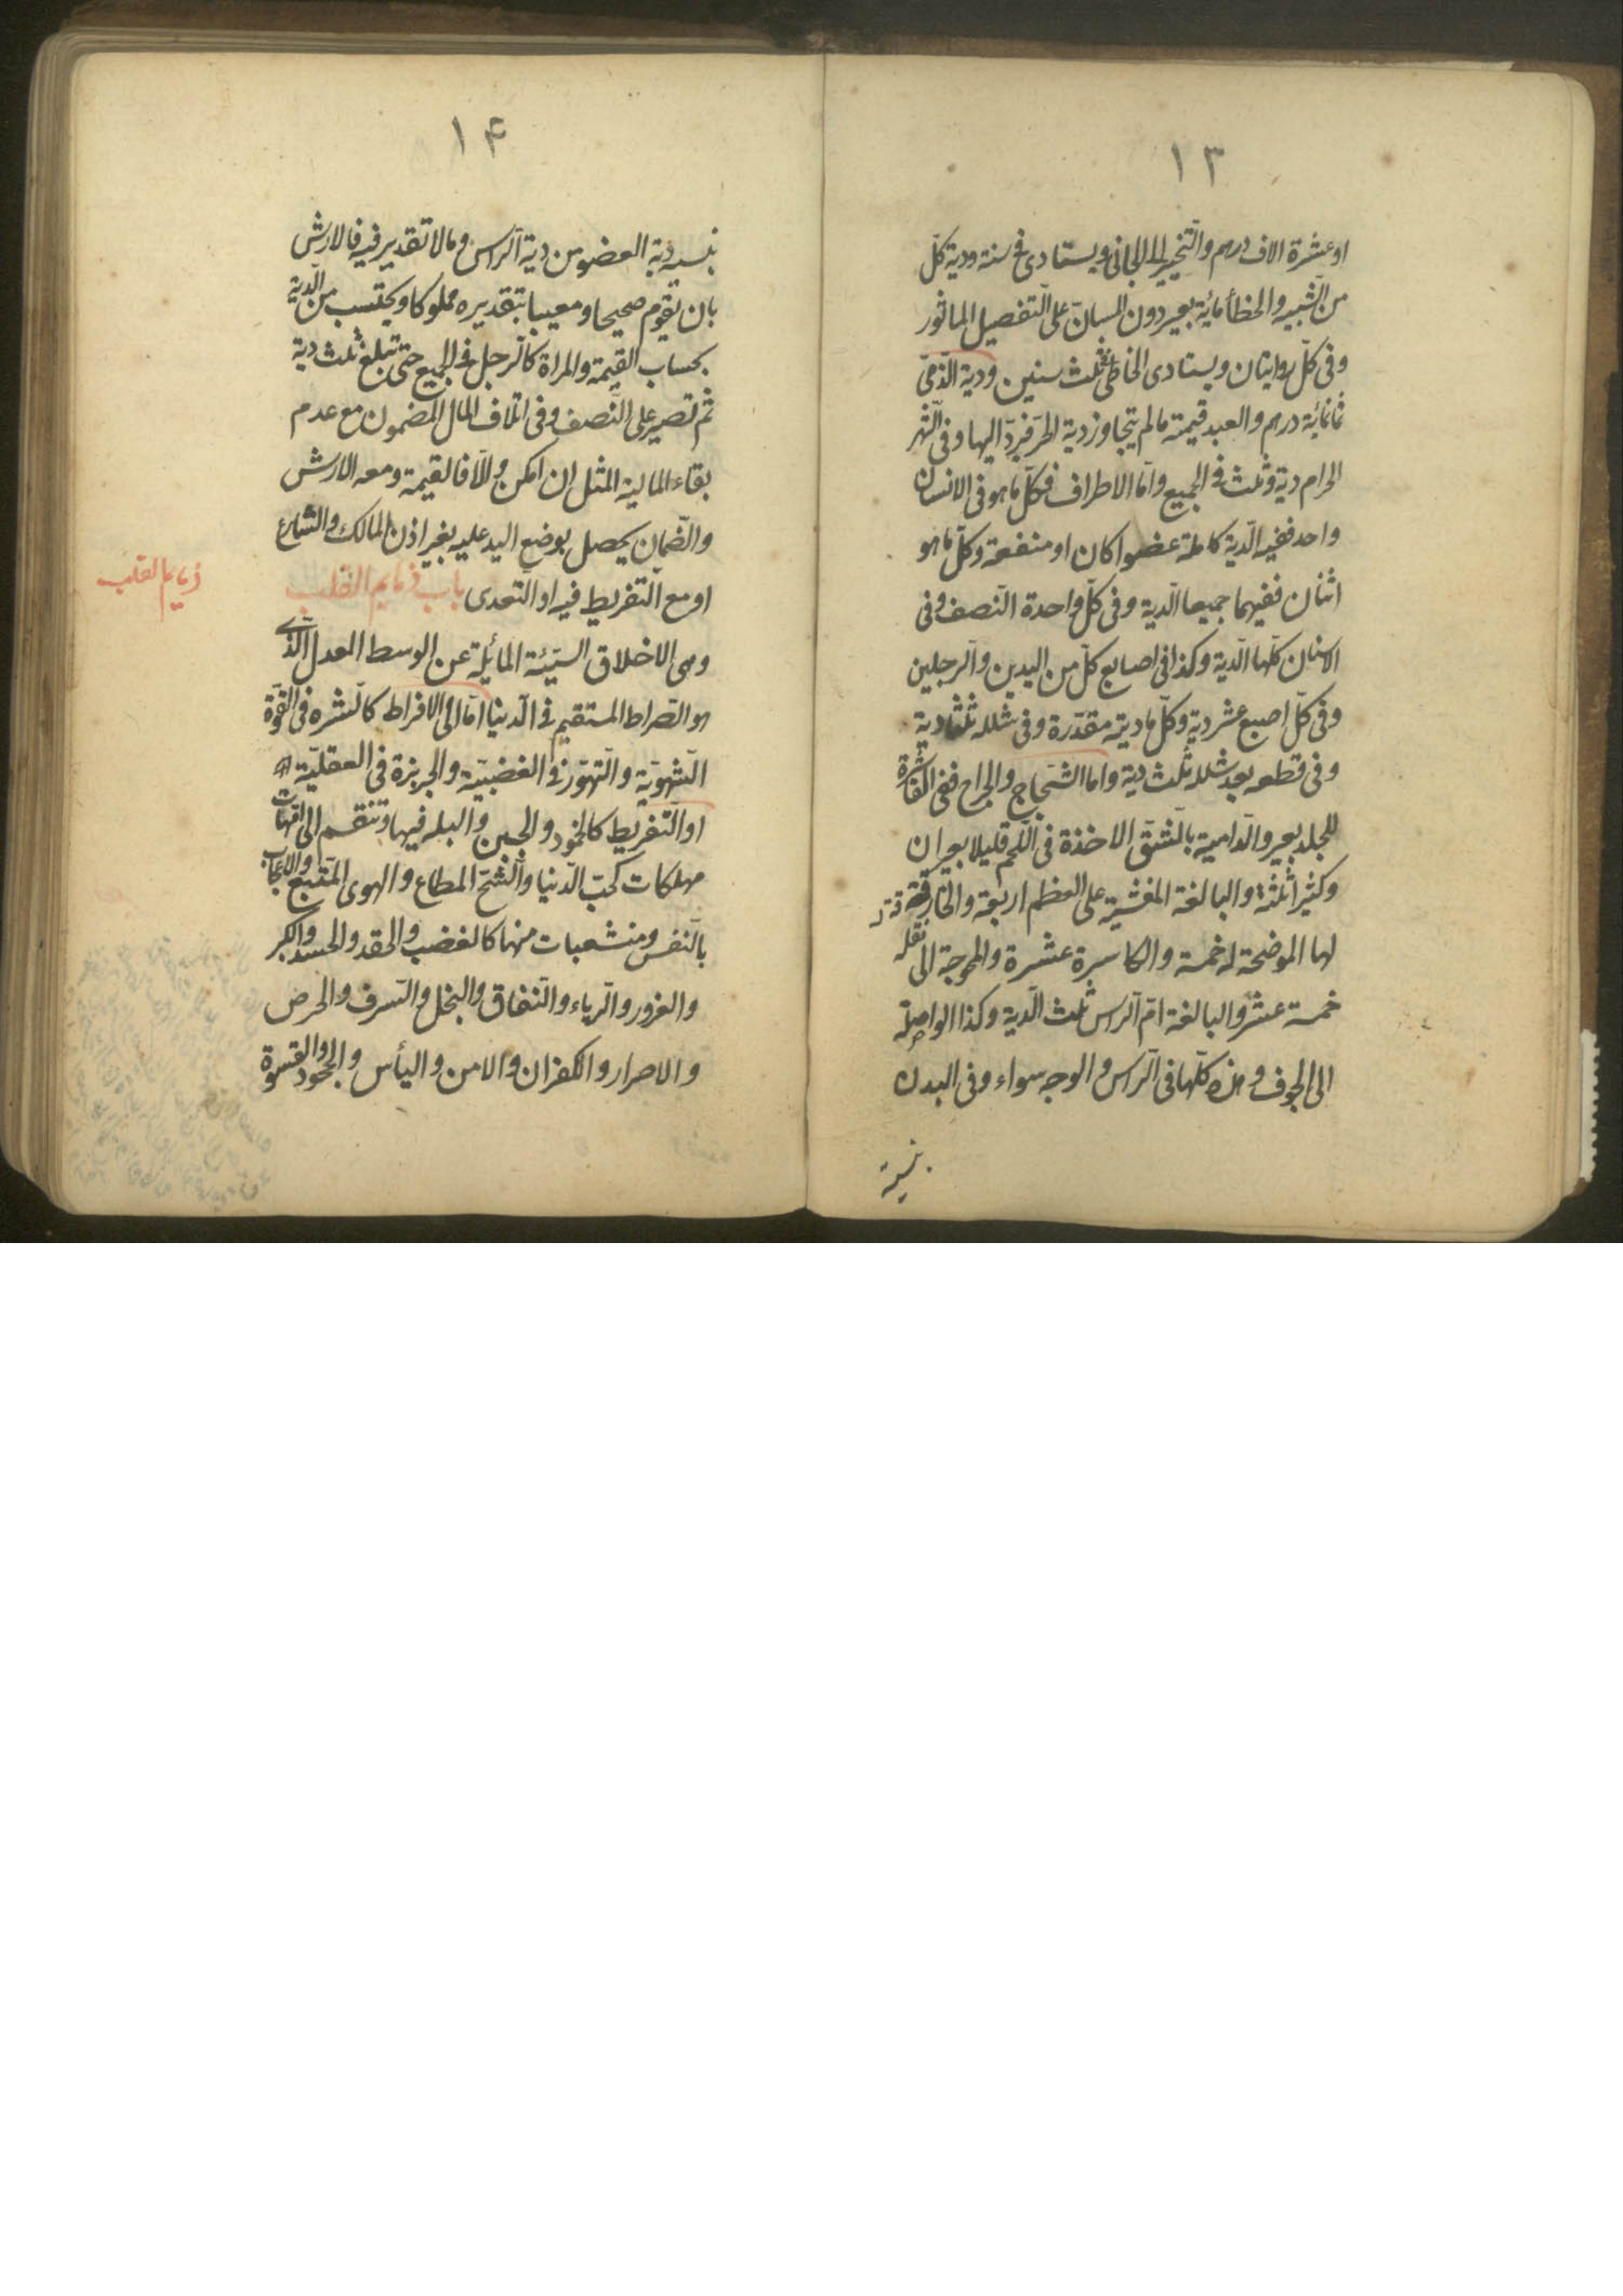 ١٣
او عشرة الاف درهم والتخيير الى الجانى ويستادى فى سنة ودية كلّ
من الشبيه والخطأ مائة بعير دون المسانّ على التفصيل الماثور
وفى كلّ روايتان ويستادى الخاطئ ثلث سنين ودية الذّمّى
ثمانمائة درهم والعبد قيمته ما لم يتجاوز دية الحرّ فيردّ اليها وفى الشهر
الحرام دية وثلث فى الجميع وامّا الاطراف فكلّ ما هو فى الانسان
واحد ففيه الدّية كاملة عضوا كان او منفعة وكلّ ما هو
اثنان ففيهما جميعا الدّية وفى كلّ واحدة النّصف وفى
الاسنان كلّها الدّية وكذا فى اصابع كلّ من اليدين والرّجلين
وفى كلّ اصبع عشر دية وكلّ ما ديته مقدّرة وفى شلله ثلثا دية
وفى قطعه بعد شلله ثلث دية واما الشّجاج والجراح ففى القاشرة
للجلد بعير والدّامية بالشقّ الاخذة فى اللّحم قليلا بعيران
وكثيرا ثلثة والبالغة المغشية على العظم اربعة والخارقة
لها الموضحة له خمسة والكاسرة عشرة والمحوجة الى نقله
خمسة عشر والبالغة امّ الرّاس ثلث الدّية وكذا الواصلة
الى الجوف وهذه كلّها فى الرّاس والوجه سواء وفى البدن
بنسبة
١۴
بنسبة دية العضو من دية الرّاس وما لا تقدير فيه فالارش
بان تقوم صحيحا ومعيبا بتقديره مملوكا ويحتسب من الدّية
بحساب القيمة والمراة كالرّجل فى الجميع حتى تبلغ ثلث دية
ثم تصير على النّصف وفى اتلاف المال المضمون مع عدم
بقاء المالية المثل ان امكن والّا فالقيمة ومعه الارش
والضّمان يحصل بوضع اليد عليه بغير اذن المالك والشارع
او مع التفريط فيه او التعدى باب ذمايم القلب
ذمايم القلب
وهى الاخلاق السيّئة المائلة عن الوسط العدل الّذى
هو الصّراط المستقيم فى الدّنيا امّا الى الافراط كالشره فى القوّة
الشّهويّة والتّهوّر فى الغضبيّة والجربزة فى العقليّة
او التّفريط كالخمود والجبن والبله فيها وتنقسم الى امّهات
مهلكات كحبّ الدّنيا والشّحّ المطاع والهوى المتّبع والاعجاب
بالنّفس ومنشعبات منها كالغضب والحقد والحسد والكبر
والغرور والرّياء والنّفاق والبخل والسّرف والحرص
والاصرار والكفران والامن والياس والجحود والقسوة